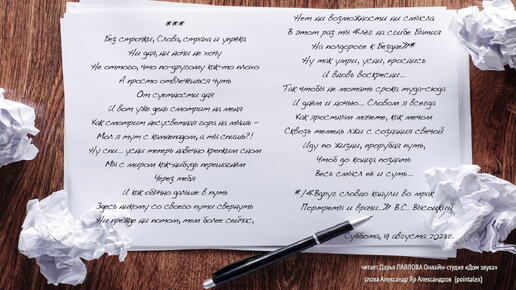 ***
Без строчки, Слова, страха и упрёка
Ни дня, ни ночи не хочу
Не оттого, что по-другому как-то плохо
А просто отвлечёшься чуть
От суетности дня
И вот уже день смотрит на меня
Как смотрит несусветная гора на мышь -
Мол я тут с камнепадом, а ты спишь?!
Ну спи... усни теперь навечно крепким сном
Мы с миром как-нибудь перешагнём
Через тебя
И как обычно дальше в путь
Здесь никому со своего пути свернуть
Ни прежде ни потом, тем более сейчас,
Нет ни возможности ни смысла
В этот раз ты "лёг на сгибе Бытия
На полдороге к Бездне"*
Ну так умри, усни, проснись
И вновь воскресни...
Так чтобы не мотать срока туда-сюда
И днём и ночью... Словом я всегда
Как яростным мачете, как мечом
Сквозь темень лжи с сознания свечой
Иду по Жизни, прорубая путь,
Чтоб до конца познать
Весь смысл её и суть...
*/"Вдруг словно канули во мрак
Портреты и врачи..." В.С. Высоцкий
Суббота, 19 августа 2023г.
читает Дарья ПАВЛОВА Онлайн-студия «Дом звука»
слова Александр Яр Александров (pointalex)